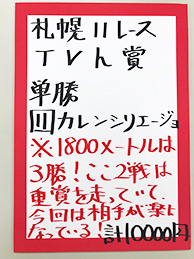 札幌11レース
TVh賞
単勝
11カレンシリエージョ
※1800メートルは
3勝!ここ2戦は
重賞を走っていて、
今回は相手が楽に
なっている!計10000円